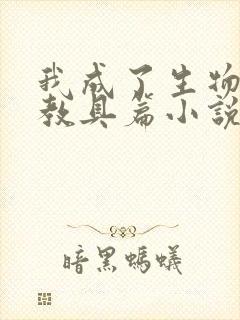 我成了生物
教具篇小說
暗黑螞蟻